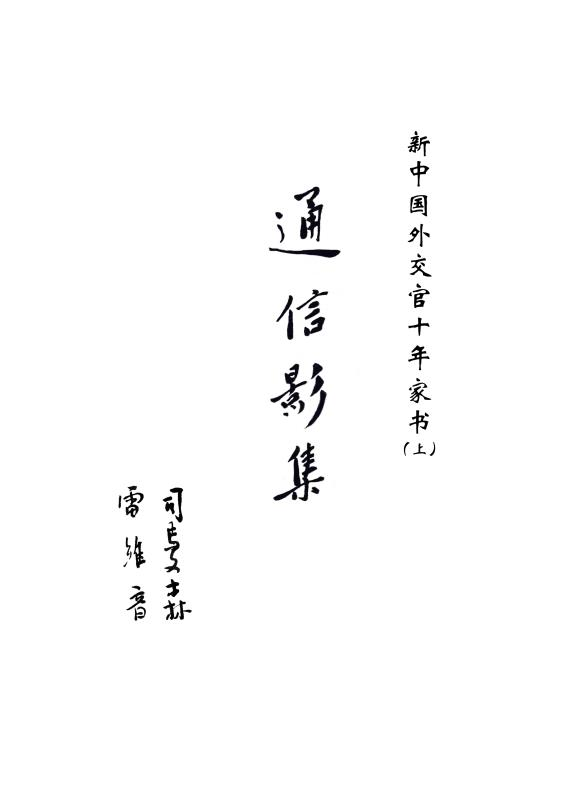 新中国外交官十年家书
（上）
通信影集
司马文森
雷维音